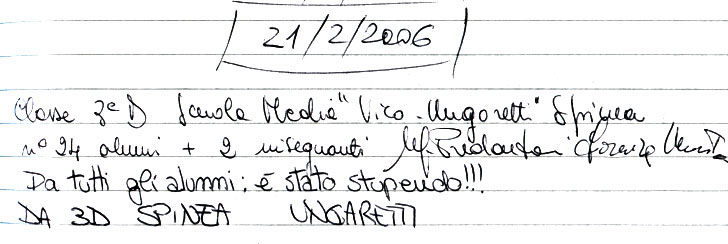 21/2/2006
Classe 3ª D Scuola Media "Vico - Ungaretti" Spinea
n° 24 alunni + 2 insegnanti
Da tutti gli alunni: è stato stupendo!!!
DA 3D SPINEA UNGARETTI